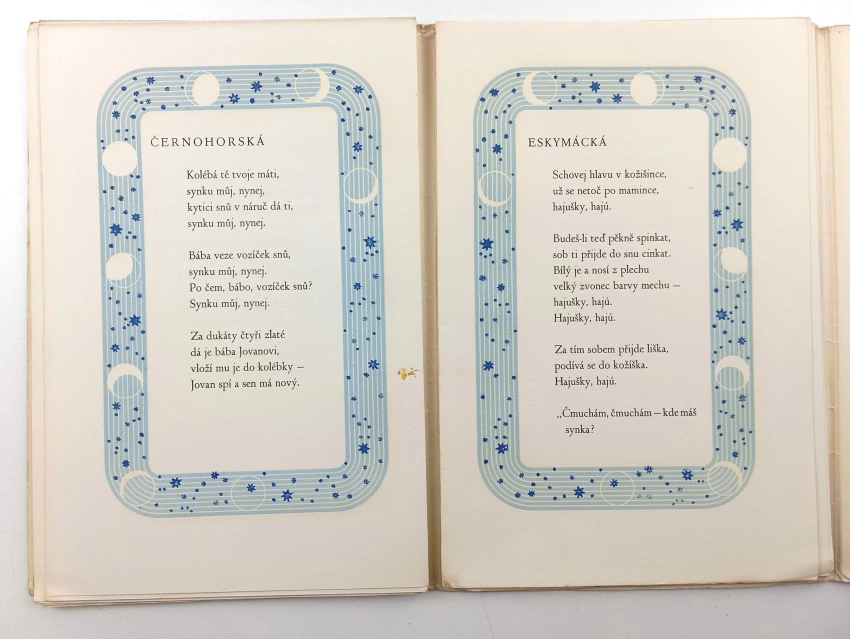 ČERNOHORSKÁ
Kolébá tě tvoje máti,
synku můj, nynej,
kytici snů v náruč dá ti,
synku můj, nynej.
Bába veze vozíček snů,
synku můj, nynej.
Po čem, bábo, vozíček snů?
Synku můj, nynej.
Za dukáty čtyři zlaté
dá je bába Jovanovi,
vloží mu je do kolébky —
Jovan spí a sen má nový.
ESKYMÁCKÁ
Schovej hlavu v kožišince,
už se netoč po mamince,
hajušky, hajú.
Budeš-li teď pěkně spinkat,
sob ti přijde do snu cinkat.
Bílý je a nosí z plechu
velký zvonec barvy mechu —
hajušky, hajú.
Hajušky, hajú.
Za tím sobem přijde liška,
podívá se do kožíška.
Hajušky, hajú.
„Čmuchám, čmuchám — kde máš
synka?